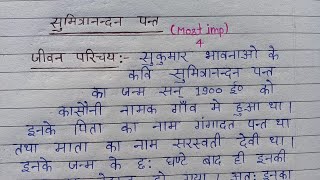 सुमित्रानन्दन पन्त
(Most imp)
4
जीवन परिचय:- सुकुमार भावनाओ के
कवि सुमित्रानन्दन पन्त
का जन्म सन् 1900 ई० को
कासौनी नामक गाँव मे हुआ था।
इनके पिता का नाम गंगादत पन्त था
तथा माता का नाम सरस्वती देवी था।
इनके जन्म के छः घण्टे बाद ही इनकी
हो गया। अतः इनका